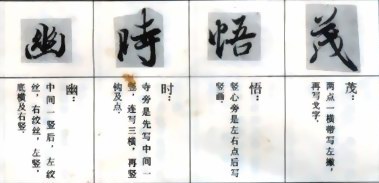 茂
茂:
两点一横带写左撇,
再写戈字。
悟
悟:
竖心旁是左右点后写
竖画。
時
时:
寺旁是先写中间一
竖,连写三横,再竖
钩及点。
幽
幽:
中间一竖后,左绞
丝,右绞丝,左竖,
底横及右竖。